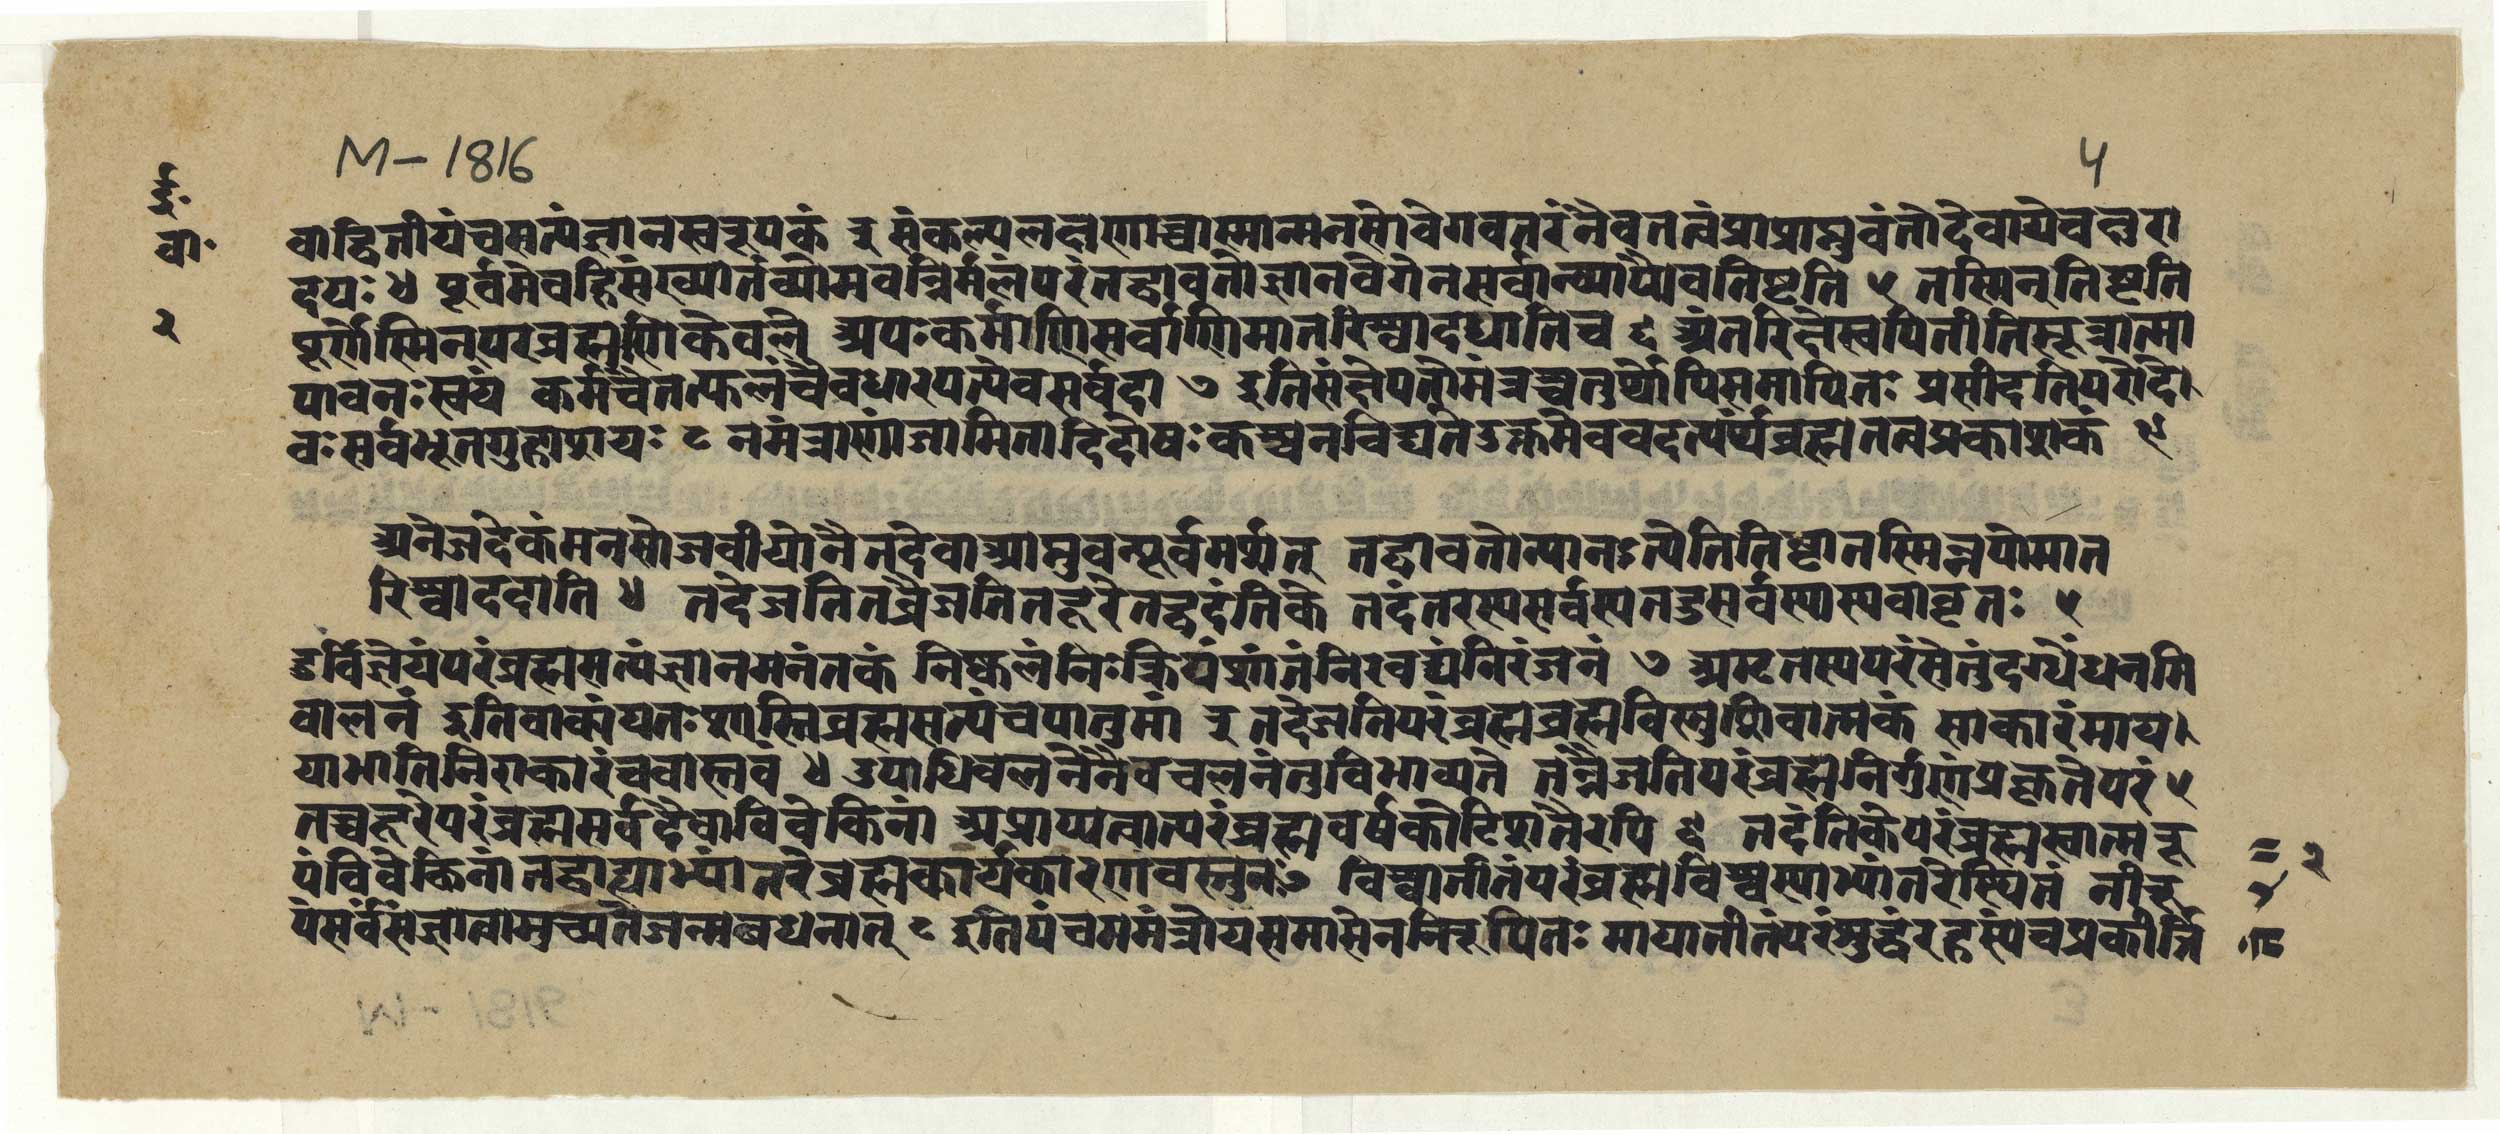 M-1816
५
ई॰
वा॰
२
वाद्वितीयंचसत्यंज्ञानस्वरूपकं ३ संकल्पलक्षणाच्चास्मान्मनसोवेगवत्तरंनैवतत्त्वंप्राप्राप्नुवंतोदेवायेचक्षुरा
दयः ४ पूर्वमेवहि व्योमवन्निर्मलंपरंतद्धावतोज्ञानवेगेनसर्वान्व्याप्यैवतिष्टति ५ तस्मिन्तिष्टति
पूर्णेस्मिन्परब्रह्मणिकेवले अपःकर्माणिसर्वाणिमातरिश्वादधातिच ६ अंतरिक्षेस्वपितीतिसूत्रात्मा
पावनःस्वयं कर्मचैतत्फलंचैवधारयत्येवसर्वदा ७ इतिसंक्षेपतोमंत्रच्चतुर्थोपिसमापितः प्रसीदतिपरोदे
वःसर्वभूतगुहाशयः ८ नमंत्राणांजामितादिदोषःकश्चनविद्यतेउक्तमेववदत्यर्थंब्रह्मतत्वप्रकाशकं ९
अनेजदेकंमनसोजवीयोनैनदेवाआप्नुवन्पूर्वमर्षत् तद्धावतोन्यानत्येतितिष्ठत्तस्मिन्नपोमात
रिश्वाददाति ४ तदेजतितन्नैजतितद्दूरेतद्वदंतिके तदंतरस्यसर्वस्यतदुसर्वस्यास्यबाह्यतः ५
दुर्विज्ञेयंपरंब्रह्मसत्यंज्ञानमनंतकं निष्कलंनिःक्रियंशांतंनिरवद्यंनिरंजनं १ अमृतस्यपरंसेतुंदग्धेंधनमि
वालनं इतिवाक्यंयतःशास्तिब्रह्मसत्यंचपातुमां ३ तदेजतिपरंब्रह्मब्रह्मविस्नुशिवात्मकं साकारंमाय
याभातिनिराकारंचवास्तवं ४ उपाधिचलनेनैवचलनंतुविभाव्यते तन्नैजतिपरंब्रह्मनिर्गुणंप्रकृतेपरं ५
तच्चदूरेपरंब्रह्मसर्वदैवाविवेकिनां अप्राप्यत्वात्परंब्रह्मवर्षकोटिशतैरपि ६ तदंतिकेपरंब्रह्मस्वात्मरू
पंविवेकिनां तद्बाह्याभ्यांतरेब्रह्मकार्यकारणवस्तुनः ७ विश्वातीतंपरंब्रह्मविश्वस्याभ्यांतरेस्थितं नीरू
पंसर्वसंज्ञात्वामुच्यतेजन्मबंधनात् ८ इतिपंचममंत्रोयसमासेननिरूपितः मायातीतंपरंशुद्धंरहस्यंचप्रकीर्त्ति
२